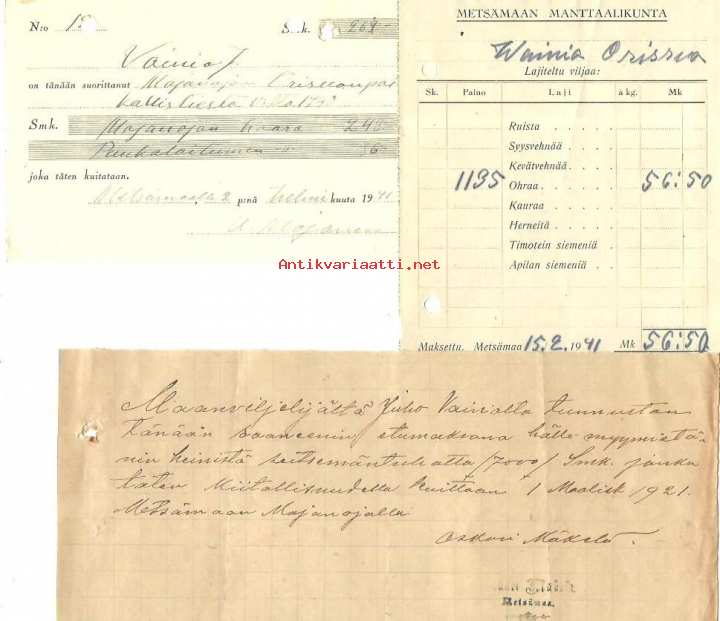 N:o
Smk.
Vainio J.
on tänään suorittanut Majanojan
Smk. Majanojan haara 243
joka täten kuitataan.
Metsämaalla 2 p:nä helmi kuuta 1941
METSÄMAAN MANTTAALIKUNTA
Wainio Orissuo
Lajiteltu viljaa:
Sk. Paino Laji à kg. Mk
Ruista
Syysvehnää
Kevätvehnää
1135 Ohraa 56:50
Kauraa
Herneitä
Timotein siemeniä
Apilan siemeniä
Maksettu. Metsämaa 15.2.1941 Mk 56:50
Antikvariaatti.net
Maanviljelijältä Juho Vainiolta tunnustan
tänään saaneeni etumaksuna hälle myymistä-
ni heinistä seitsemäntuhatta /7000/ Smk. jonka
täten kiitollisuudella kuittaan 1 Maalisk 1921.
Metsämaan Majanojalla
Oskari Mäkelä.
Metsämaa.